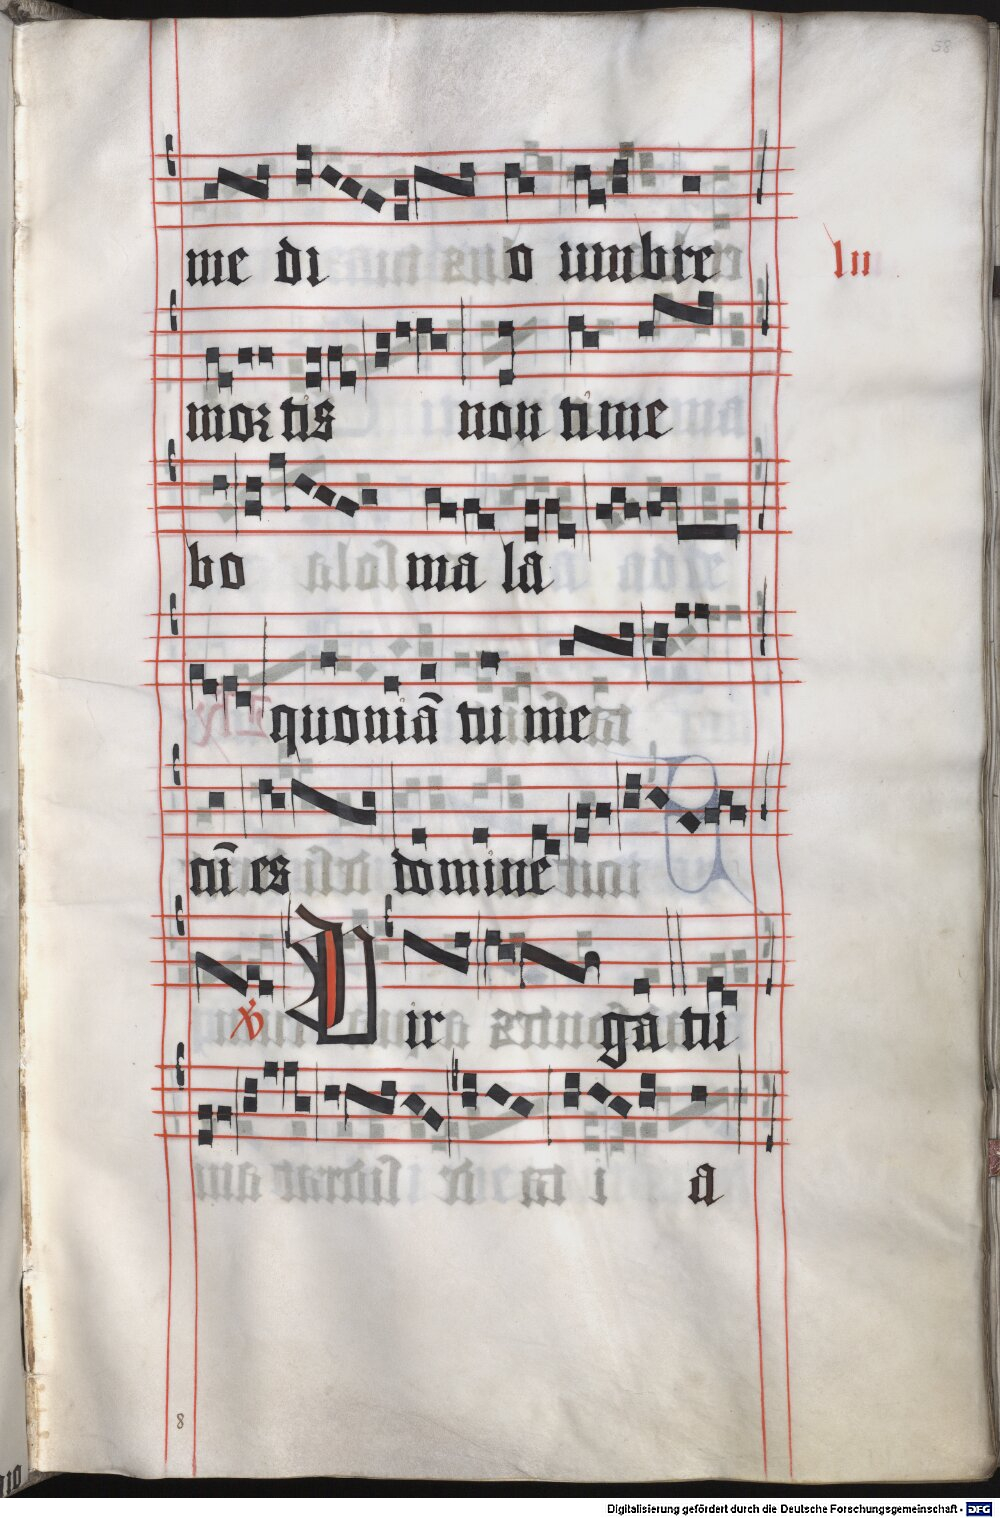 58
me di o umbre
lii
mortis non time
bo ma la
quoniā tu me
cū es domine
℣ Vir ga tu
a
8
Digitalisierung gefördert durch die Deutsche Forschungsgemeinschaft - DFG